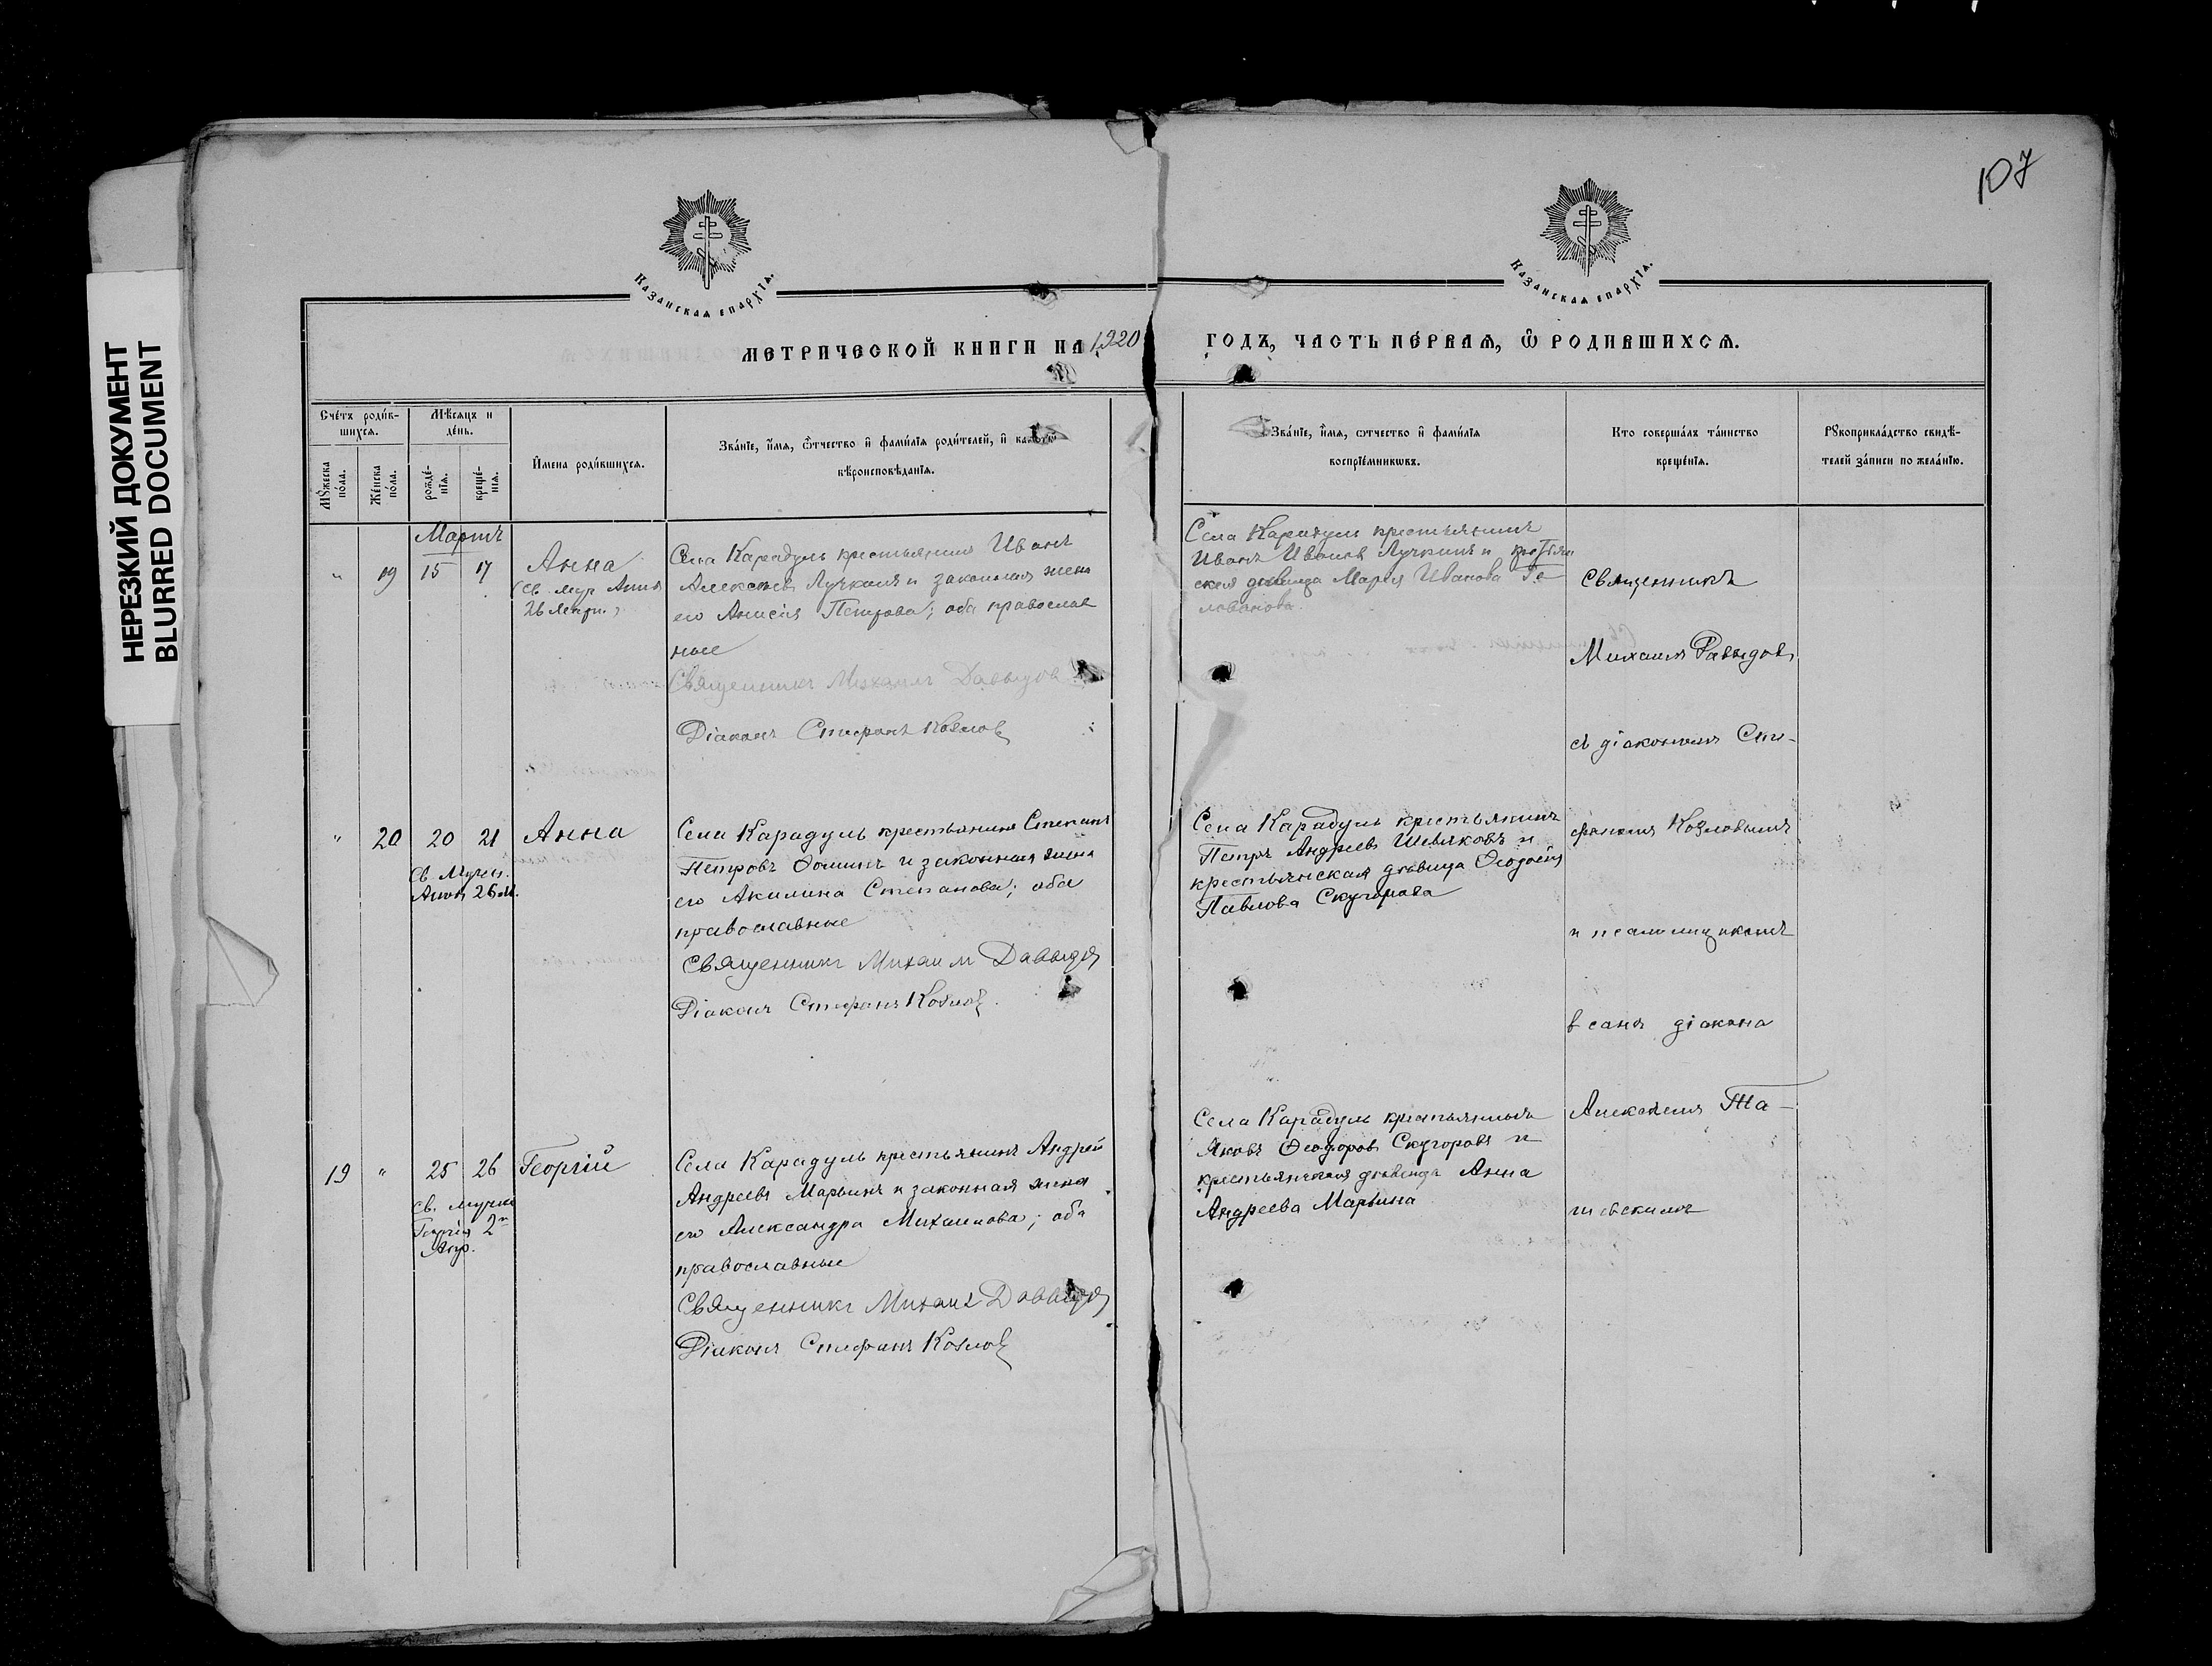 107
НЕРЕЗКИЙ ДОКУМЕНТ
BLURRED DOCUMENT
Казанская епархїа.
Казанская епархїа.
МЕТРИЧЕСКОЙ КНИГИ НА 1920
ГОДЪ, ЧАСТЬ ПЕРВАЯ, Ѡ РОДИВШИХСЯ.
Счетъ родив-
шихся.
Мѣсяцъ и
день.
Мужеска
пола.
Женска
пола.
рожде-
нїя.
креще-
нїя.
Имена родившихся.
Званїе, имя, ѿчество и фамилїя родителей, и какого
вѣроисповѣданїя.
Званїе, имя, ѿчество и фамилїя
воспрїемниковъ.
Кто совершалъ таинство
крещенїя.
Рукоприкладство свидѣ-
телей записи по желанїю.
Мартъ
" 19 15 17
Анна
Села Карадуль крестьянинъ Иванъ
Алексѣевъ Лучкинъ и законная жена
его Анисія Петрова; оба православ
ные
Священникъ Михаилъ Давыдовъ
Діаконъ Стефанъ Козловъ
Села Карадуль крестьянинъ
Иванъ Ивановъ Лучкинъ и крестьян
ская дѣвица Марія Иванова
Священникъ
Михаилъ Давыдовъ
съ діакономъ Сте-
фаномъ Козловымъ
и псаломщикомъ
в санѣ діакона
Алексѣемъ Та-
шевскимъ
" 20 20 21 Анна
Св. Мучен.
Анны 26 м.
Села Карадуль крестьянинъ Степанъ
Петровъ Ѳоминъ и законная жена
его Акилина Степанова; оба
православные
Священникъ Михаилъ Давыдовъ
Діаконъ Стефанъ Козловъ
Села Карадуль крестьянинъ
Петръ Андреевъ Шевляковъ и
крестьянская дѣвица Ѳеодосія
Павлова Скугорова
19 " 25 26 Георгій
св. мучен
Георгія 2
Апр.
Села Карадуль крестьянинъ Андрей
Андреевъ Марьинъ и законная жена
его Александра Михаилова; оба
православные
Священникъ Михаилъ Давыдовъ
Діаконъ Стефанъ Козловъ
Села Карадуль крестьянинъ
Яковъ Ѳеодоровъ Скугоровъ и
крестьянская дѣвица Анна
Андреева Марьина